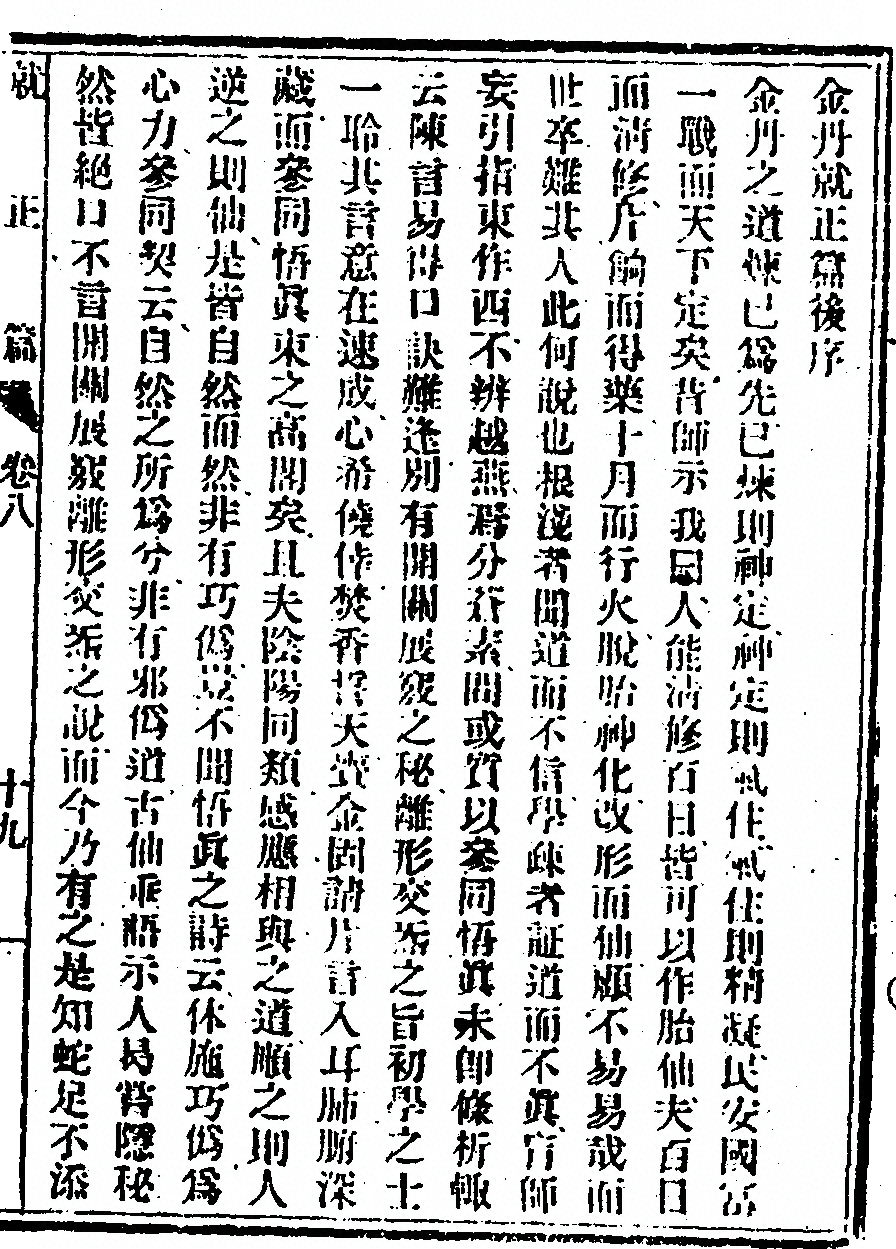 金丹就正篇後序
金丹之道煉已爲先已煉則神定神定則氣住氣住則精凝民安國富
一戰而天下定矣昔師示我曰人能清修百日皆可以作胎仙夫百日
而清修片餉而得藥十月而行火脫胎神化改形而仙顧不易易哉而
世卒難其人此何說也根淺者聞道而不信學疎者証道而不眞盲師
妄引指東作西不辨越燕寧分蒼素間或質以參同悟眞未卽條析輙
云陳言易得口訣難逢別有開關展竅之秘離形交炁之旨初學之士
一聆其言意在速成心希僥倖焚香誓天賫金固請片言入耳肺腑深
藏而參同悟眞束之高閣矣且夫陰陽同類感應相與之道順之則人
逆之則仙是皆自然而然非有巧僞豈不聞悟眞之詩云休施巧僞爲
心力參同契云自然之所爲兮非有邪僞道古仙垂語示人曷嘗隱秘
然皆絕口不言開關展竅離形交炁之說而今乃有之是知蛇足不添
就正篇 卷八 十九